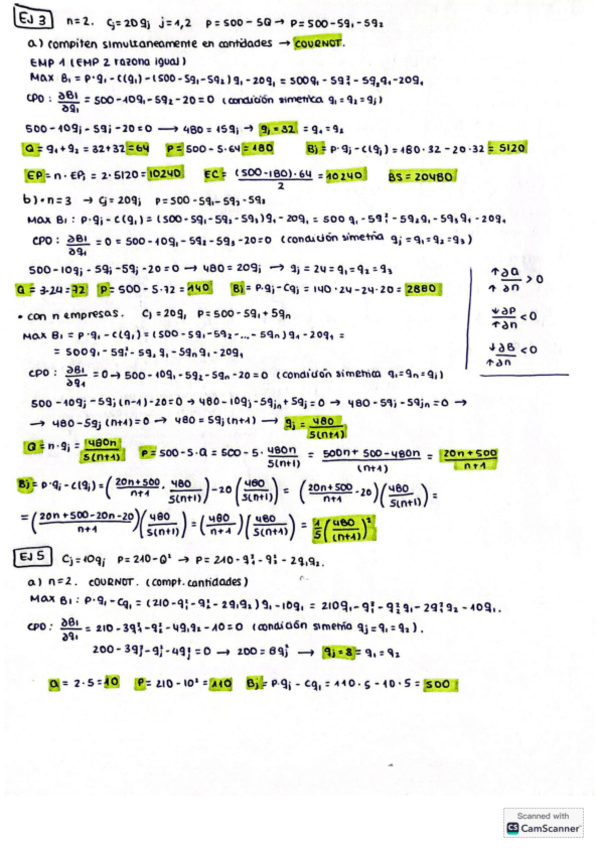 EJ 3 n=2. Cj=20qj j=1,2 P=500-5Q → P=500-5q₁-5q₂
a) compiten simultaneamente en cantidades → COURNOT.
EMP 1 (EMP 2 razona igual)
MAX B₁ = P·q₁-C(q₁) = (500-5q₁-5q₂)q₁-20q₁ = 500q₁-5q₁²-5q₂q₁-20q₁
CPO: ∂B1/∂q₁ = 500-10q₁-5q₂-20=0 (condición simetrica q₁=q₂=qj)
500-10qj-5qj-20=0 → 480=15qj → qj=32 = q₁=q₂
Q=q₁+q₂=32+32=64 P=500-5·64=180 Bj=P·qj-C(qj)=180·32-20·32=5120
EP=n·EPj=2·5120=10240 EC=(500-180)·64/2=10240 BS=20480
b)·n=3 → Cj=20qj P=500-5q₁-5q₂-5q₃
MAX B₁: P·qj-C(q₁)=(500-5q₁-5q₂-5q₃)q₁-20q₁=500q₁-5q₁²-5q₂q₁-5q₃q₁-20q₁
CPO: ∂B1/∂q₁=0=500-10q₁-5q₂-5q₃-20=0 (condición simetría qj=q₁=q₂=q₃)
500-10qj-5qj-5qj-20=0 → 480=20qj → qj=24=q₁=q₂=q₃
Q=3·24=72 P=500-5·72=140 Bj=P·qj-Cqj=140·24-24·20=2880
↑∂Q/↑∂n>0
↓∂P/↑∂n<0
↓∂B/↑∂n<0
• con n empresas. Cj=20qj P=500-5q₁+5qn
MAX B₁=P·q₁-C(q₁)=(500-5q₁-5q₂-...-5qn)q₁-20q₁=
=500q₁-5q₁²-5q₂q₁-5qnq₁-20q₁
CPO: ∂B1/∂q₁=0→500-10q₁-5q₂-5qn-20=0 (condición simetrica q₁=qn=qj)
500-10qj-5qj(n-1)-20=0→480-10qj-5qjn+5qj=0 → 480-5qj-5qjn=0 →
→ 480-5qj(n+1)=0 → 480=5qj(n+1) → qj=480/5(n+1)
Q=n·qj=480n/5(n+1) P=500-5·Q=500-5·480n/5(n+1)=500n+500-480n/(n+1)=20n+500/n+1
Bj=P·qj-C(qj)=(20n+500/n+1·480/5(n+1))-20(480/5(n+1))=(20n+500/n+1-20)(480/5(n+1))=
=(20n+500-20n-20/n+1)(480/5(n+1))=(480/n+1)(480/5(n+1))=1/5(480/(n+1))²
EJ 5 Cj=10qj P=210-Q² → P=210-q₁²-q₂²-2q₁q₂.
a) n=2. COURNOT. (compt. cantidades)
MAX B₁: P·q₁-Cq₁=(210-q₁²-q₂²-2q₁q₂)q₁-10q₁=210q₁-q₁³-q₂²q₁-2q₁²q₂-10q₁.
CPO: ∂B1/∂q₁=210-3q₁²-q₂²-4q₁q₂-10=0 (condición simetría qj=q₁=q₂).
200-3qj²-qj²-4qj²=0 → 200=8qj² → qj=8=q₁=q₂
Q=2·5=10 P=210-10²=110 Bj=P·qj-Cq₁=110·5-10·5=500
Scanned with
CS CamScanner